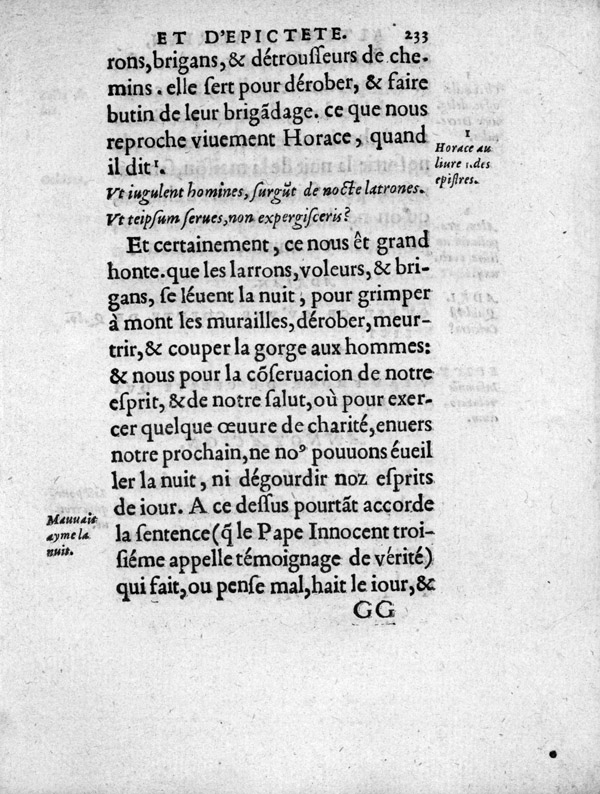 ET D'EPICTETE. 233
rons, brigans, & détrouſſeurs de che-
mins. elle ſert pour dérober, & faire
butin de leur brigãdage. ce que nous
reproche viuement Horace, quand
il dit¹.
1
Horace au
liure 1. des
epiſtres.
Vt iugulent homines, ſurgũt de nocte latrones.
Vt teipſum ſerues, non expergiſceris?
Et certainement, ce nous êt grand
honte. que les larrons, voleurs, & bri-
gans, ſe léuent la nuit, pour grimper
à mont les murailles, dérober, meur-
trir, & couper la gorge aux hommes:
& nous pour la cõſeruacion de notre
eſprit, & de notre ſalut, où pour exer-
cer quelque œuure de charité, enuers
notre prochain, ne noꝰ pouuons éueil
ler la nuit, ni dégourdir noz eſprits
de iour. A ce deſſus pourtãt accorde
Mauuais
ayme la
nuit.
la ſentence (q̃ le Pape Innocent troi-
ſiéme appelle témoignage de vérité)
qui fait, ou penſe mal, hait le iour, &
GG